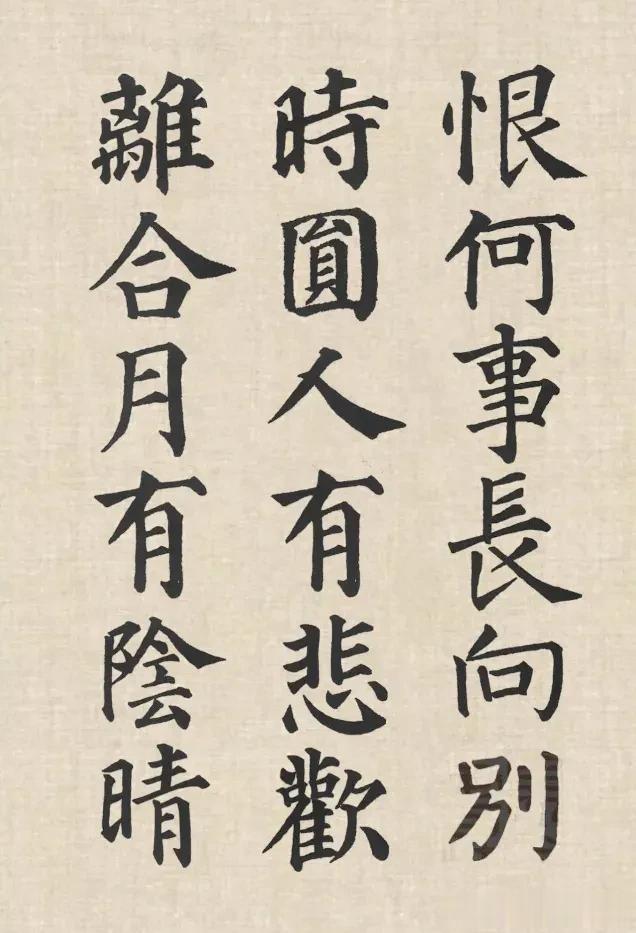 恨何事長向別
時圓人有悲歡
離合月有陰晴